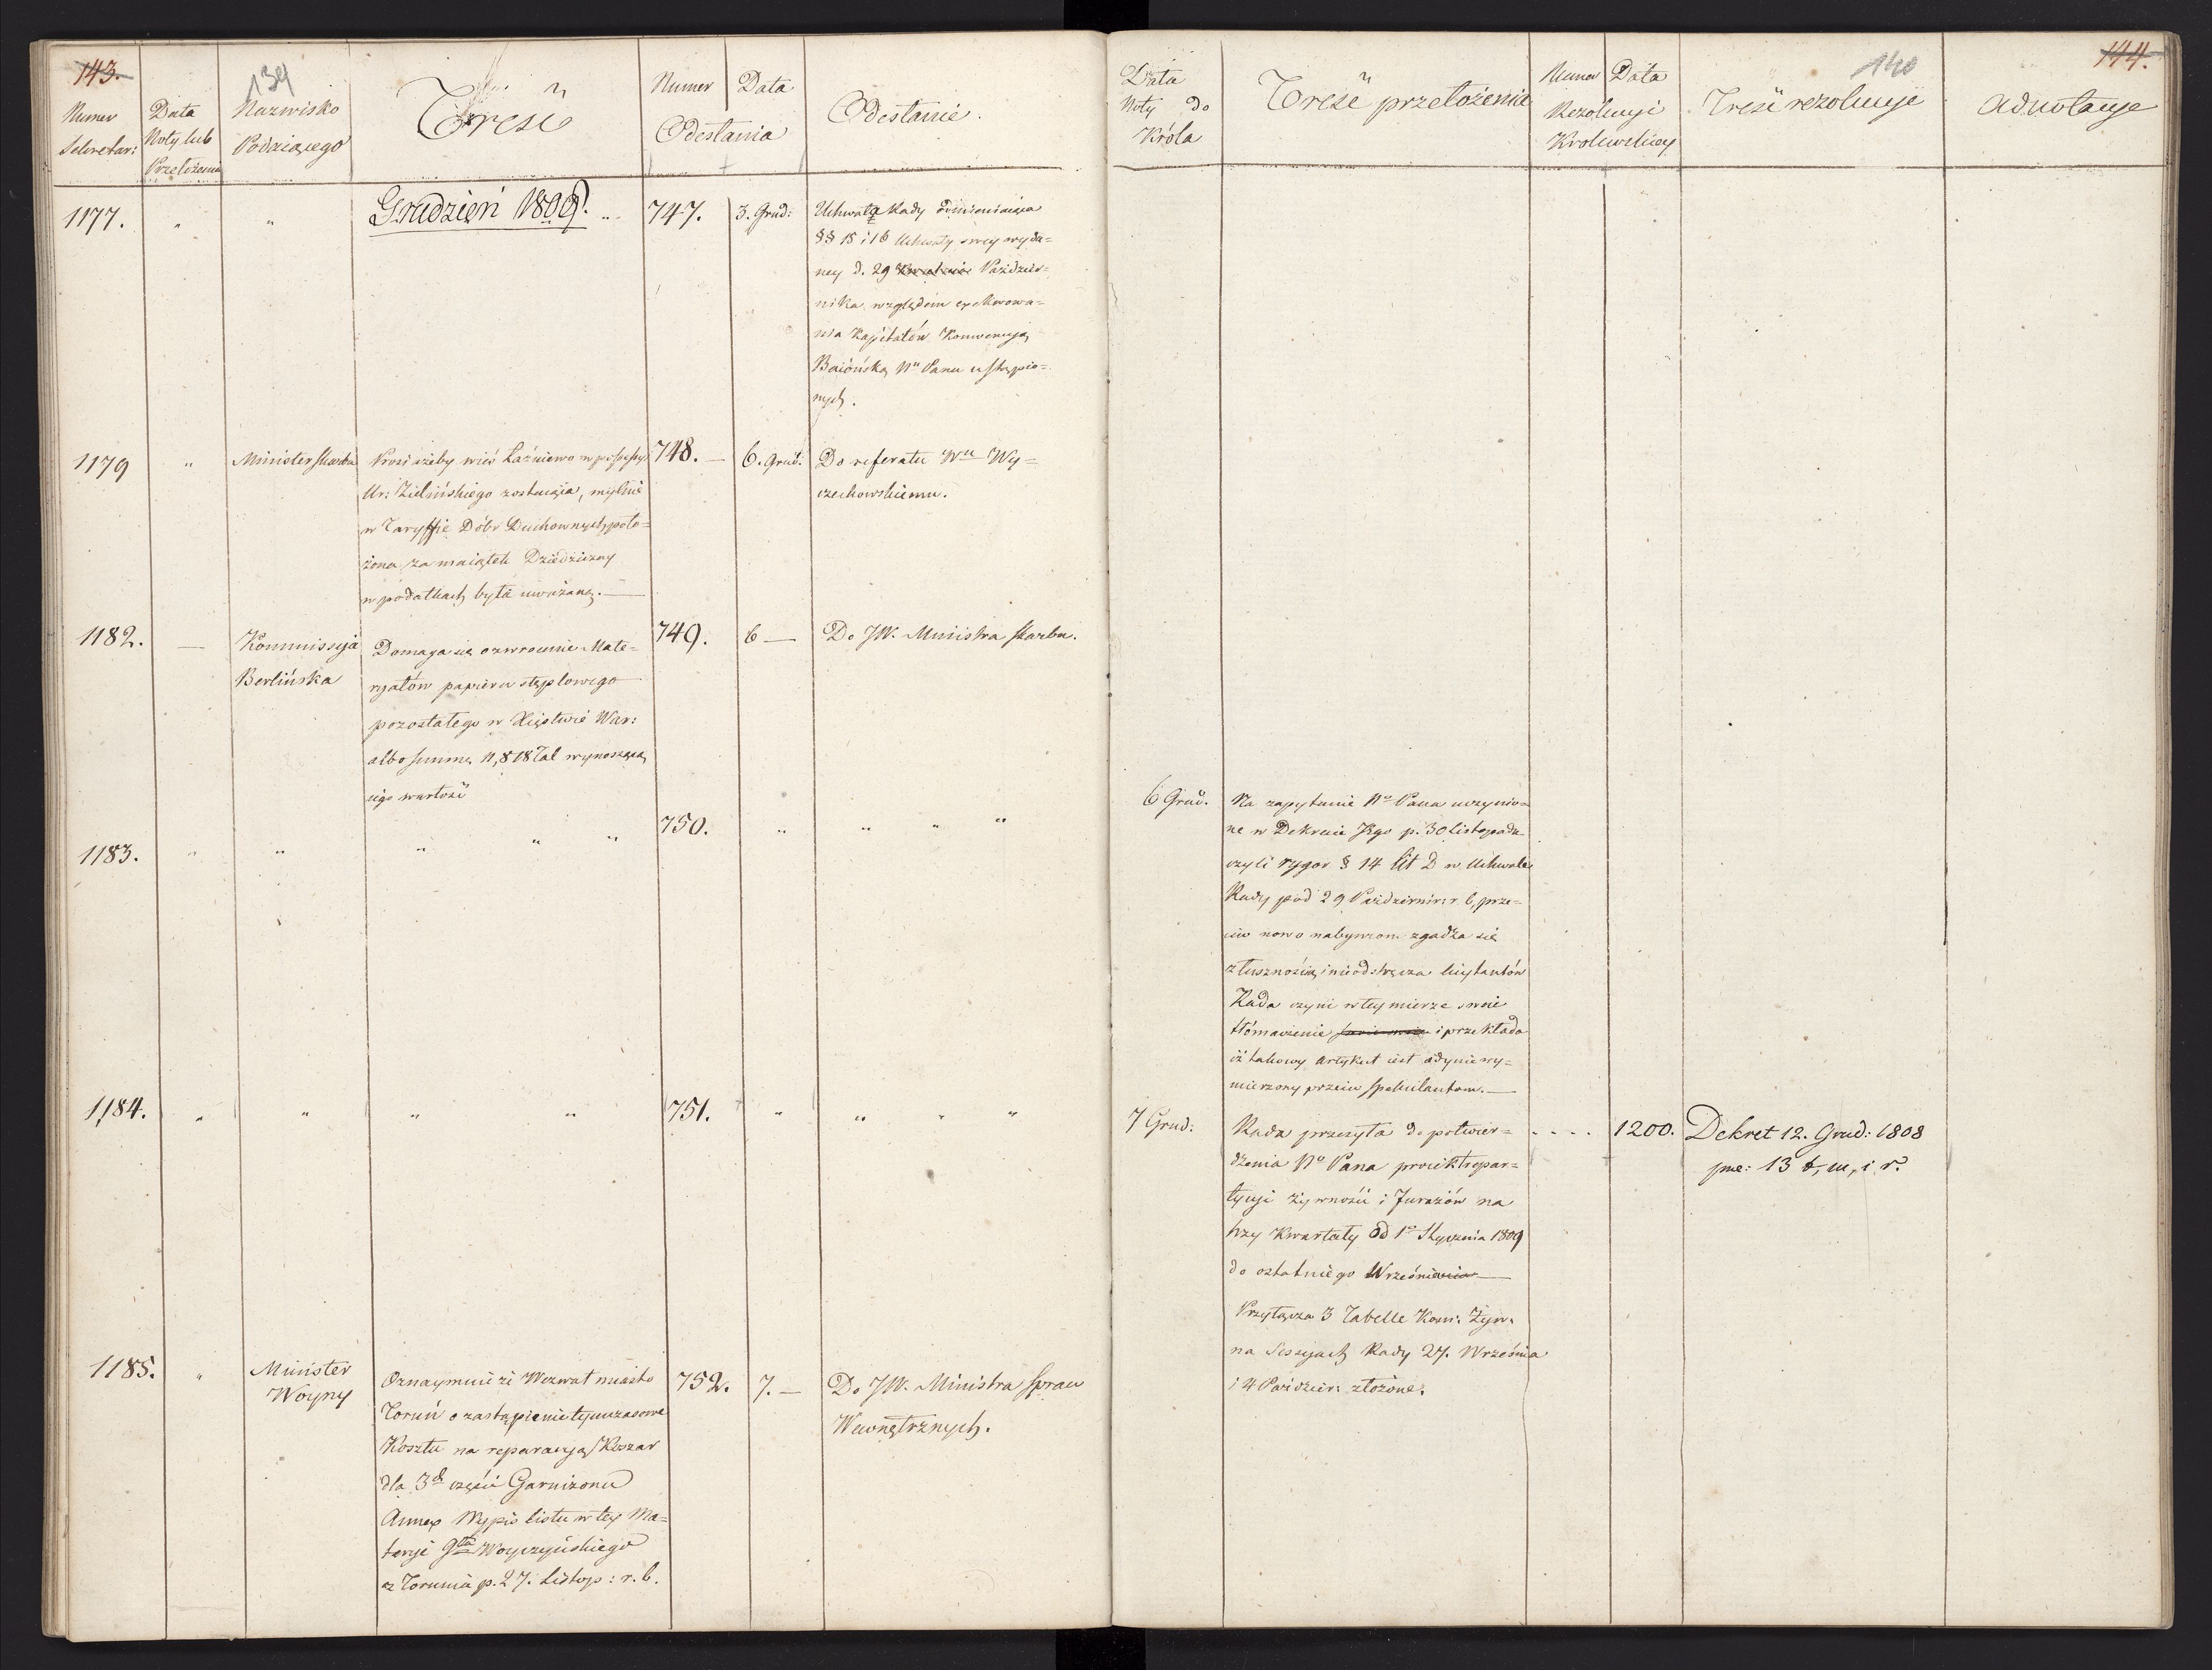 143.
139
Numer
Sekretar:
Data
Noty lub
Przełożenia
Nazwisko
Podaiącego
Treść
Numer
Data
Odesłania
Odesłanie.
1177.
"
"
Grudzień 1809.
747.
3. Grud:
Uchwała Rady odmieniaiąca
§§ 15 i 16 Uchwały swey wyda=
ney d. 29 Paździer=
nika względem exekwowa=
nia Kapitałów Konwencyą
Baiońską Nu Panu ustąpio=
nych.
1179
"
Minister Skarbu
Prosi ażeby wieś Łaźniewo w possessyi
Ur: Zielińskiego zostaiąca, mylnie
w Taryffie Dóbr Duchownych poło=
żona za maiątek Dziedziczny
w podatkach była uważaną.—
748. —
6. Grud.
Do referatu Wu Wy=
czechowskiemu.
1182.
—
Kommissyja
Berlińska
Domaga się o zwrócenie Mate=
ryałów papieru stęplowego
pozostałego w Xięstwie War:
albo summę 11,818 Tal wynoszącą
iego wartość
749.
6 —
Do JW. Ministra Skarbu.
1183.
"
"
"
"
"
750.
"
"
"
"
1184.
"
"
"
"
751.
"
"
"
"
1185.
"
Minister
Woyny
Oznaymuie że Wezwał miasto
Toruń o zastąpienie tymczasowe
Kosztu na reparacyą Koszar
dla 3ey części Garnizonu
Annex Wypis listu w tey Ma=
teryi Gła Woyczyńskiego
z Torunia p. 27. Listop: r. b.
752.
7. —
Do JW. Ministra Spraw
Wewnętrznych.
140
144.
Data
Noty do
Króla
Treść przełożenia
Numer
Data
Rezolucyi
Królewskiey
Treść rezolucyi
Adnotacye
6 Grud.
Na zapytanie No Pana uczynio=
ne w Dekrecie Jego p. 30 Listopada
czyli rygor § 14 lit D w Uchwale
Rady pod 29 Październir: r. b, prze=
ciw nowo nabywcom zgadza się
z słusznością i nie odstręcza licytantów
Rada czyni w tey mierze swoie
tłómaczenie i przekłada
iż takowy artykuł iest iedynie wy=
mierzony przeciw spekulantom.—
7 Grud:
Rada przesyła do potwier=
dzenia No Pana proiekt repar=
tycyi żywności i Furażów na
trzy Kwartały od 1o Stycznia 1809
do ostatniego Września
Przyłącza 3 Tabelle Kom: Żyw:
na Sessyach Rady 27. Września
i 4 Paździer: złożone.
1200.
Dekret 12. Grud: 1808
pme: 13 t, m, i r.